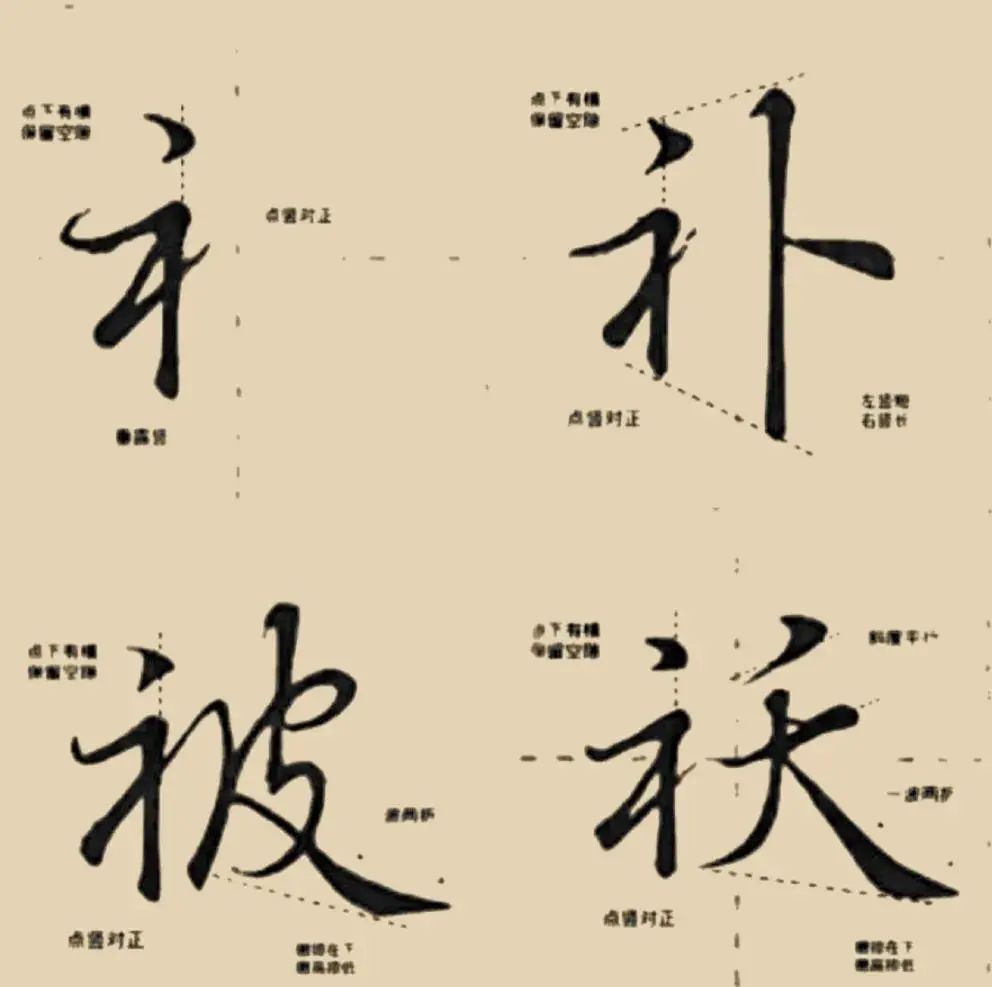 点下有横
保留空隙
衤
点竖对正
垂露竖
点下有横
保留空隙
补
点竖对正
左竖短
右竖长
点下有横
保留空隙
被
波两折
点竖对正
撇捺在下
撇高捺低
点下有横
保留空隙
袄
斜度平行
一波两折
点竖对正
撇捺在下
撇高捺低